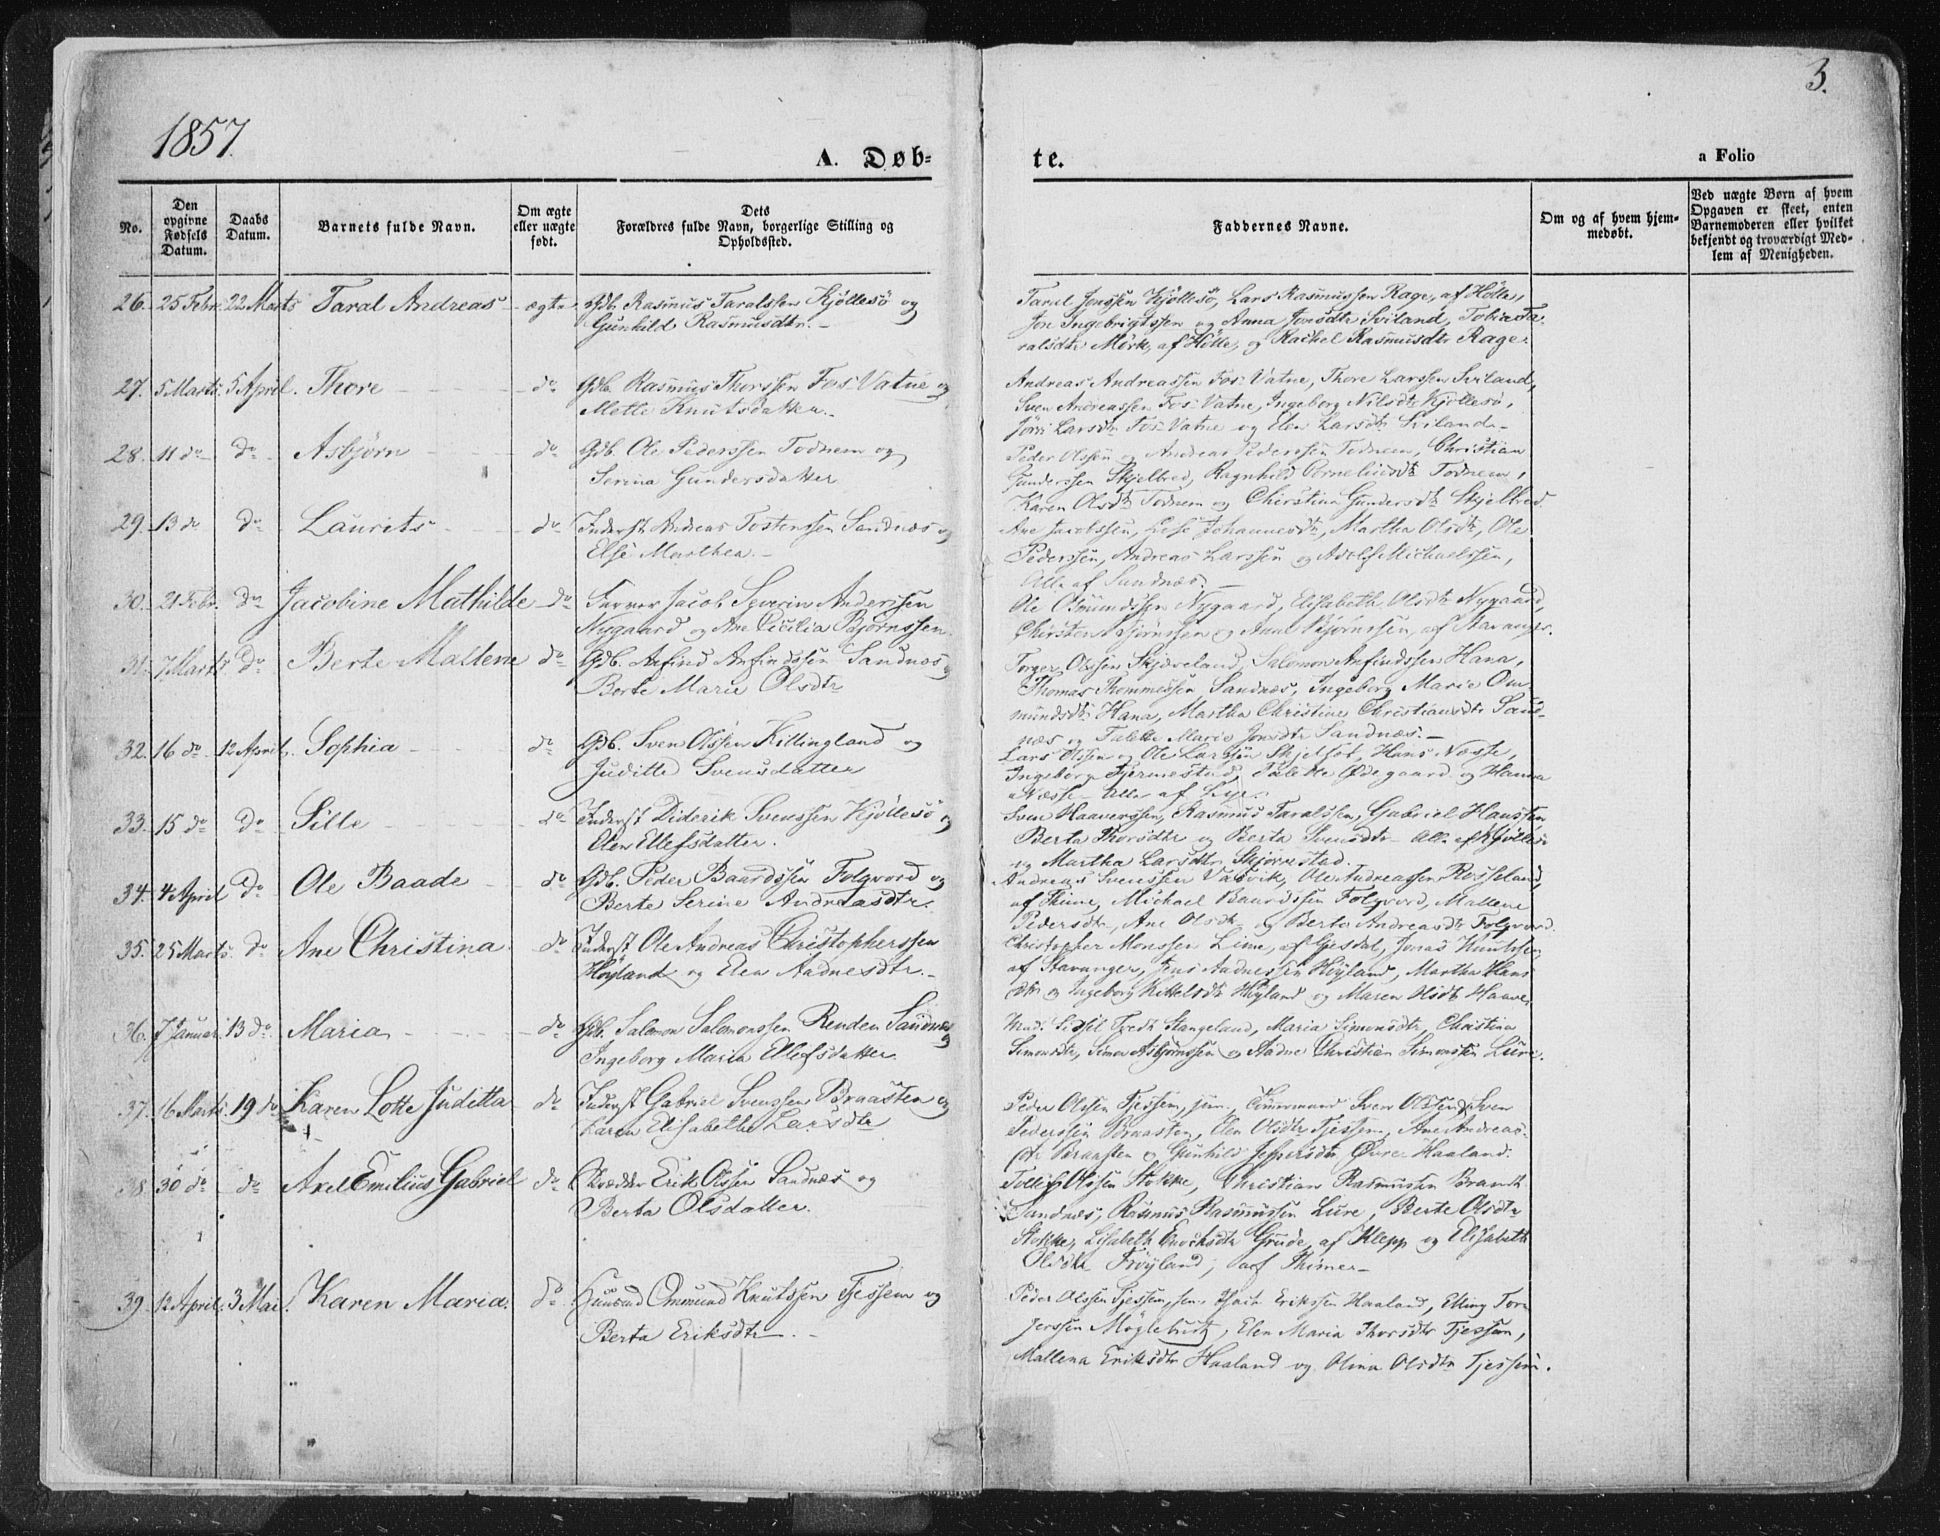 1857.
3.
A. Døb-
te.
a Folio
No.
Den opgivne Fødsels Datum.
Daabs Datum.
Barnets fulde Navn.
Om ægte eller uægte født.
Dets Forældres fulde Navn, borgerlige Stilling og Opholdssted.
Faddernes Navne.
Om og af hvem hjemmedøbt.
Ved uægte Børn af hvem Opgaven er skeet, enten Barnemoderen eller hvilket bekjendt og troværdigt Medlem af Menigheden.
26. 25 Febr. 22 Marts Taral Andreas ægte Gdb. Rasmus Taralssen Kjøllesö og
Gunhild Rasmusdtr.
Taral Jonssen Kjøllesö, Lars Rasmussen Rage, af Hölle,
Jon Ingebrigtssen og Anna Jonsdtr Sviland, Tobia Ta-
ralsdtr Mörk, af Hölle, og Rachel Rasmusdtr Rage.
27. 5 Marts. 5 April. Thore do Gdb. Rasmus Thorssen Fos-Vatne og
Mette Knutsdatter.
Andreas Andreassen Fos-Vatne, Thore Larssen Sviland,
Sven Andreassen Fos-Vatne, Ingeborg Nilsdtr Kjøllesö,
Larsdtr Fos-Vatne og Elen Larsdtr Sviland.
28. 11 do do Asbjørn do Gdb. Ole Pederssen Todnem og
Serina Gundersdatter
Peder Olssen og Andreas Pederssen Todnem, Christian
Gunderssen Skjelbred, Ragnhild Corneliusdtr Todnem,
Karen Olsdtr Todnem og Christina Gundersdtr Skjelbred.
29. 13 do do Laurits do Inderst Andreas Tostenssen Sandnæs og
Else Marthea.
Ane Jacobssen, Johannesdtr, Martha Olsdtr, Ole
Pederssen, Andreas Larssen og Adolf Michaelssen,
Alle af Sandnæs.
30. 21 Febr. do Jacobine Mathilde do Farver Jacob Severin Anderssen
Nygaard og Ane Cicilia Bjørnssen.
Ole Osmundssen Nygaard, Elisabeth Olsdtr Nygaard,
Bjørnssen og Anne Bjørnssen, af Stavanger.
31. 7 Marts. do Berte Mallene do Gdb. Anfind Anfindssen Sandnæs og
Berte Marie Olsdtr
Torger Olssen Skjæveland, Salomon Anfindssen Hana,
Thomas Thommessen Sandnæs, Ingeborg Marie Om-
mundsdtr Hana, Martha Christine Christiansdtr Sand-
næs og Talette Marie Jonsdtr Sandnæs.
32. 16 do 12 April. Sophia do Gdb. Sven Olssen Killingland og
Juditte Svensdatter
Lars Olssen og Ole Larssen Skjelfot, Hans Næsse,
Ingeborg Fjermestad, Talette Ødegaard og Hanna
Næsse. Alle af Lye.
33. 15 do do Sille do Inderst Diderik Svenssen Kjøllesö og
Elen Ellefsdatter.
Sven Haaverssen, Rasmus Taralssen, Gabriel Hanssen
Berta Thorsdtr og Berta Svensdtr Alle af Kjøllesö
og Martha Larsdtr Skjørestad.
34. 4 April do Ole Baade do Gdb. Peder Baardssen Folgvord og
Berte Serine Andreasdtr.
Andreas Svenssen Vasvik, Ole Andreassen Rosseland,
af Thime, Michael Baardssen Folgvord, Mallene
Pedersdtr, Ane Olsdtr og Berte Andreasdtr Folgvord.
35. 25 Marts. do Ane Christina do Inderst Ole Andreas Christopherssen
Høyland og Elen Aadnesdtr.
Christopher Monssen Lime, af Gjesdal, Jonas Knutssen,
af Stavanger, Jens Aadnessen Høyland, Martha Hans
dtr og Ingeborg Kittelsdtr Høyland og Maren Olsdtr Haave.
36. 7 Januar. 13 do Maria do Gdb. Salomon Salomonssen Renden Sandnæs og
Ingeborg Maria Ellefsdatter.
Mad. Sissel Tredt Stangeland, Maria Simonsdtr, Christina
Simonsdtr, Simon Asbjørnssen og Aadne Christian Simonssen Lure.
37. 16 Marts. 19 do Karen Lotte Juditta do Inderst Gabriel Svenssen Braasten og
Karen Elisabetha Larsdtr
Peder Olssen Tjessem, jun., Sven Olssen, Sven
Pederssen Braasten, Elen Olsdtr Tjessem, Ane Andreas-
dtr Braasten og Gunhild Jespersdtr Øvre Haaland.
38. 30 do do Axel Emilius Gabriel do Skrædder Erik Olssen Sandnæs og
Berta Olsdatter.
Tollef Olssen Stokke, Christian Rasmussen Brandt
Sandnæs, Rasmus Rasmussen Lure, Berte Olsdtr
Stokke, Lisabeth Enochsdtr Grude, af Klepp og Elisabeth
Olsdtr Frøyland, af Thime.
39. 12 April. 3 Mai. Karen Maria. do Huusmd Ommund Knutssen Tjessem og
Berta Eriksdtr.
Peder Olssen Tjessem, sen., Erikssen Haaland, Elling Tor-
jerssen Møglebust, Elen Maria Thorsdtr Tjessem,
Mallena Eriksdtr Haaland og Olina Olsdtr Tjessem.